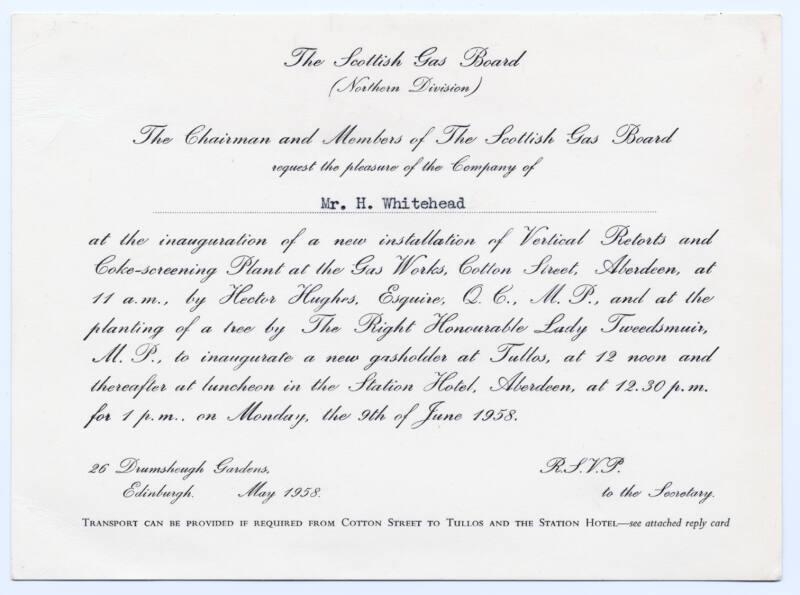 The Scottish Gas Board
(Northern Division)
The Chairman and Members of The Scottish Gas Board
request the pleasure of the Company of
Mr. H. Whitehead
at the inauguration of a new installation of Vertical Retorts and
Coke-screening Plant at the Gas Works, Cotton Street, Aberdeen, at
11 a.m., by Hector Hughes, Esquire, Q. C., M. P., and at the
planting of a tree by The Right Honourable Lady Tweedsmuir,
M. P., to inaugurate a new gasholder at Tullos, at 12 noon and
thereafter at luncheon in the Station Hotel, Aberdeen, at 12.30 p.m.
for 1 p.m., on Monday, the 9th of June 1958.
26 Drumsheugh Gardens, R.S.V.P.
Edinburgh. May 1958. to the Secretary.
TRANSPORT CAN BE PROVIDED IF REQUIRED FROM COTTON STREET TO TULLOS AND THE STATION HOTEL—see attached reply card